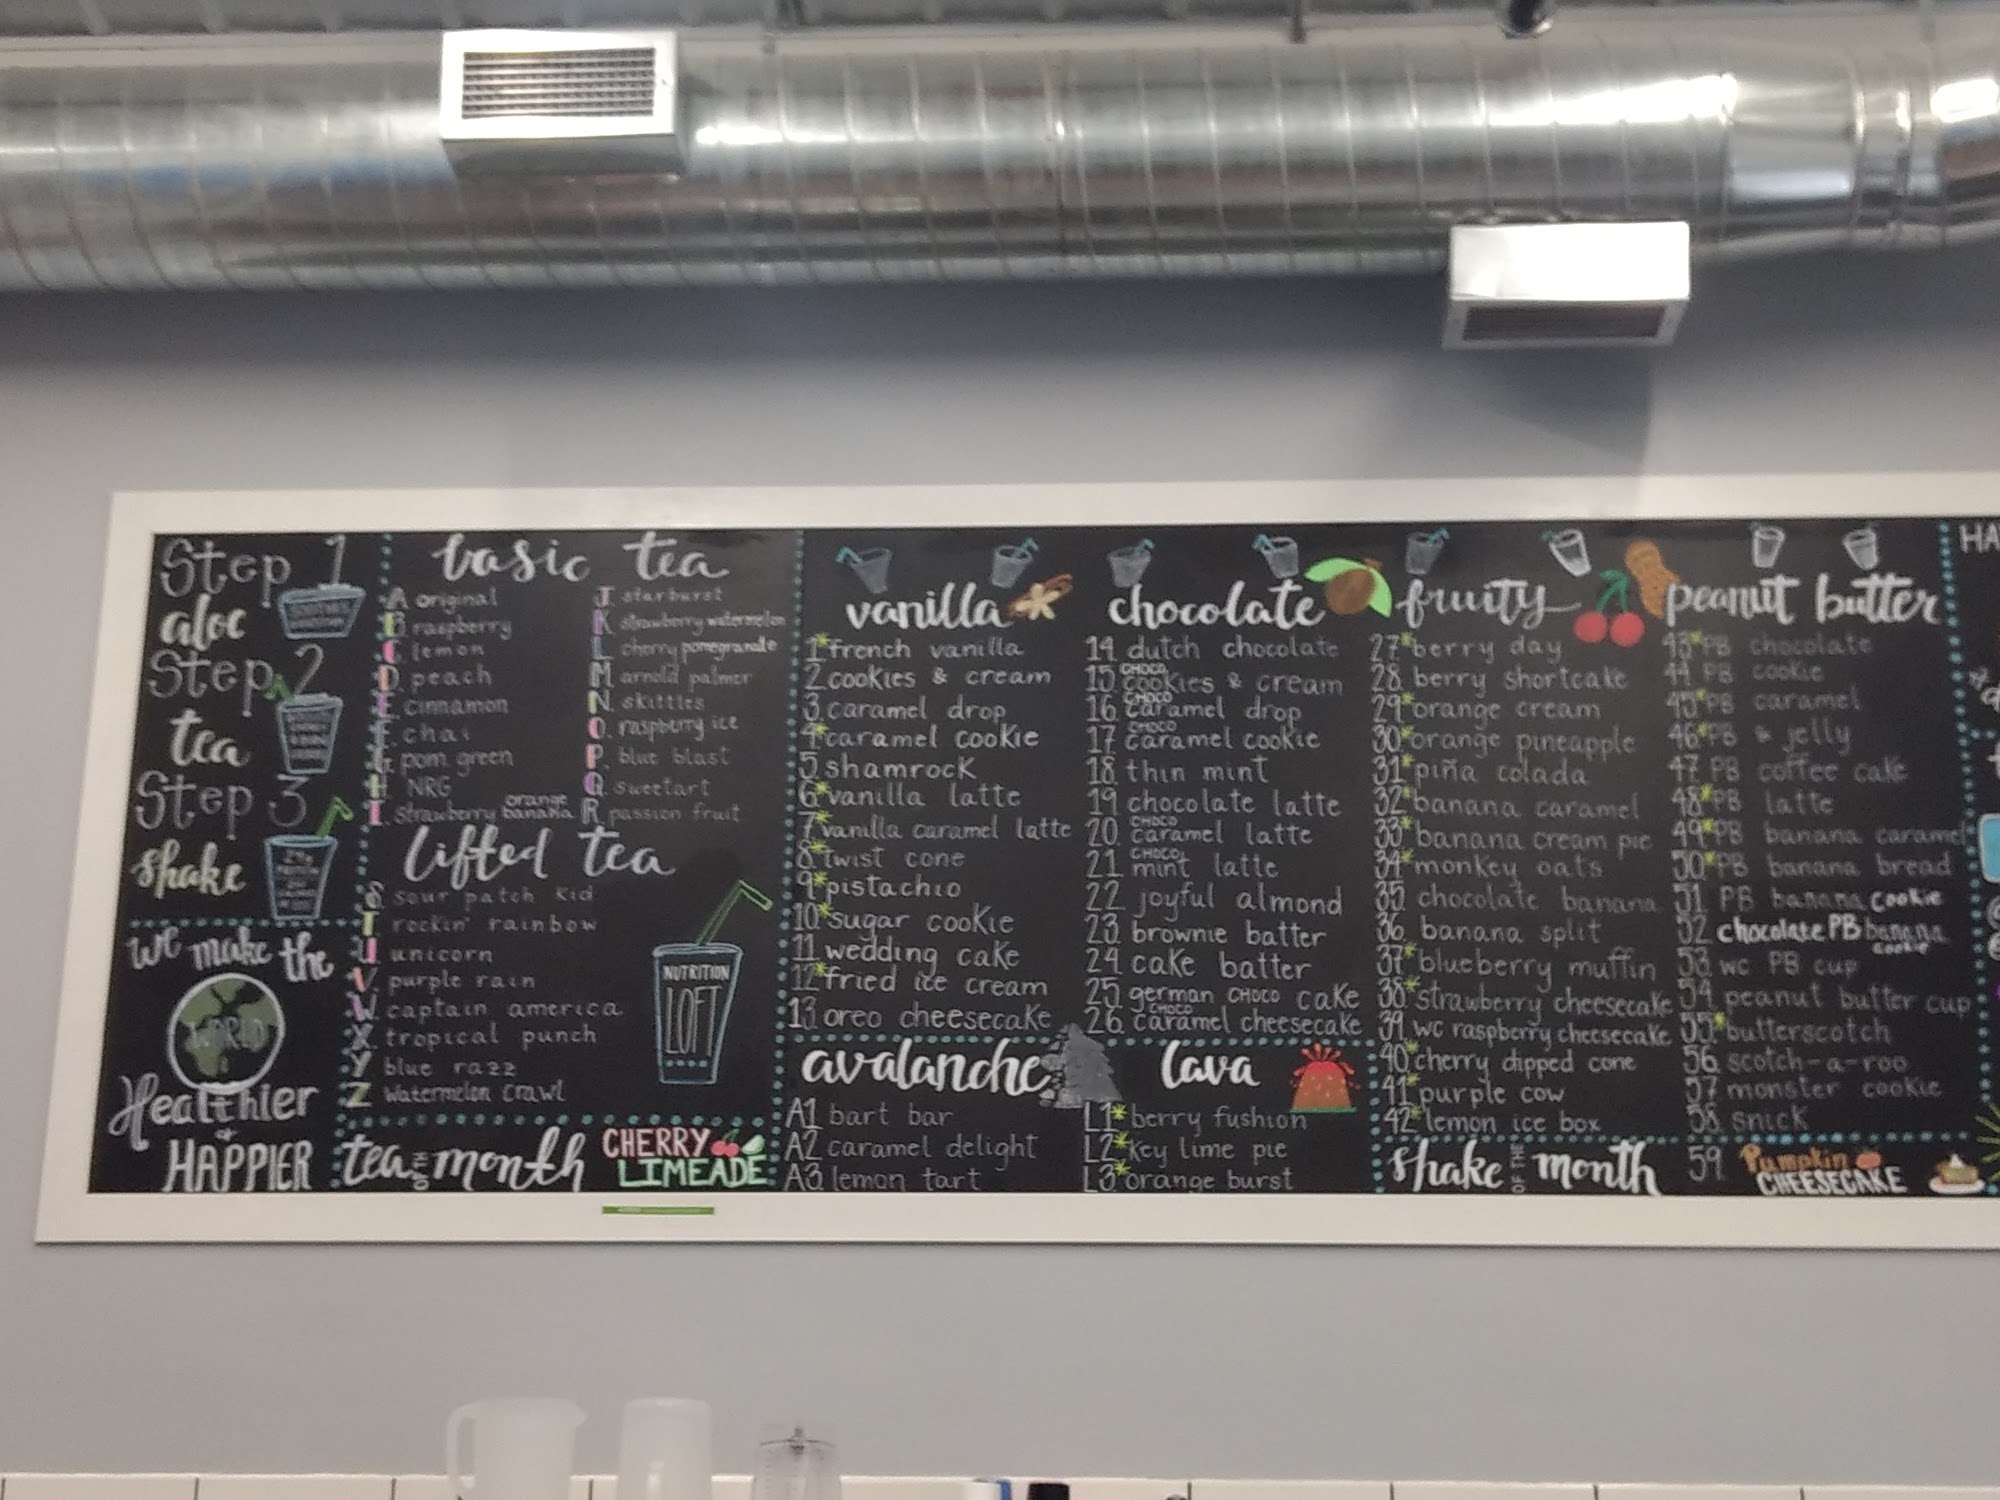 Step 1
aloe
Step 2
tea
Step 3
shake
we make the
WORLD
Healthier
+
HAPPIER
basic tea
A original
B raspberry
C lemon
D. peach
E cinnamon
F. chai
G pom green
H NRG
I. strawberry orange banana
J. starburst
K strawberry watermelon
L cherry pomegranate
M arnold palmer
N. skittles
O. raspberry ice
P. blue blast
Q. sweetart
R. passion fruit
lifted tea
S. sour patch kid
T rockin' rainbow
U unicorn
V. purple rain
W. captain america
X. tropical punch
Y blue razz
Z watermelon crawl
NUTRITION
LOFT
tea OF THE month
CHERRY
LIMEADE
vanilla
1* french vanilla
2 cookies & cream
3 caramel drop
4* caramel cookie
5 shamrock
6* vanilla latte
7* vanilla caramel latte
8* twist cone
9* pistachio
10* sugar cookie
11 wedding cake
12* fried ice cream
13 oreo cheesecake
avalanche
A1 bart bar
A2 caramel delight
A3 lemon tart
chocolate
14 dutch chocolate
15 CHOCO cookies & cream
16 CHOCO caramel drop
17 CHOCO caramel cookie
18 thin mint
19 chocolate latte
20 CHOCO caramel latte
21 CHOCO mint latte
22 joyful almond
23 brownie batter
24 cake batter
25 german CHOCO cake
26 CHOCO caramel cheesecake
lava
L1* berry fushion
L2* Key lime pie
L3* orange burst
fruity
27* berry day
28 berry shortcake
29* orange cream
30* orange pineapple
31* piña colada
32* banana caramel
33* banana cream pie
34* monkey oats
35 chocolate banana
36 banana split
37* blueberry muffin
38* strawberry cheesecake
39 wc raspberry cheesecake
40* cherry dipped cone
41* purple cow
42* lemon ice box
shake OF THE month
59 Pumpkin
CHEESECAKE
peanut butter
43* PB chocolate
44 PB cookie
45* PB caramel
46* PB & jelly
47 PB coffee cake
48* PB latte
49* PB banana caramel
50* PB banana bread
51 PB banana cookie
52 chocolate PB banana cookie
53 wc PB cup
54 peanut butter cup
55* butterscotch
56 scotch-a-roo
57 monster cookie
58 snick
HA